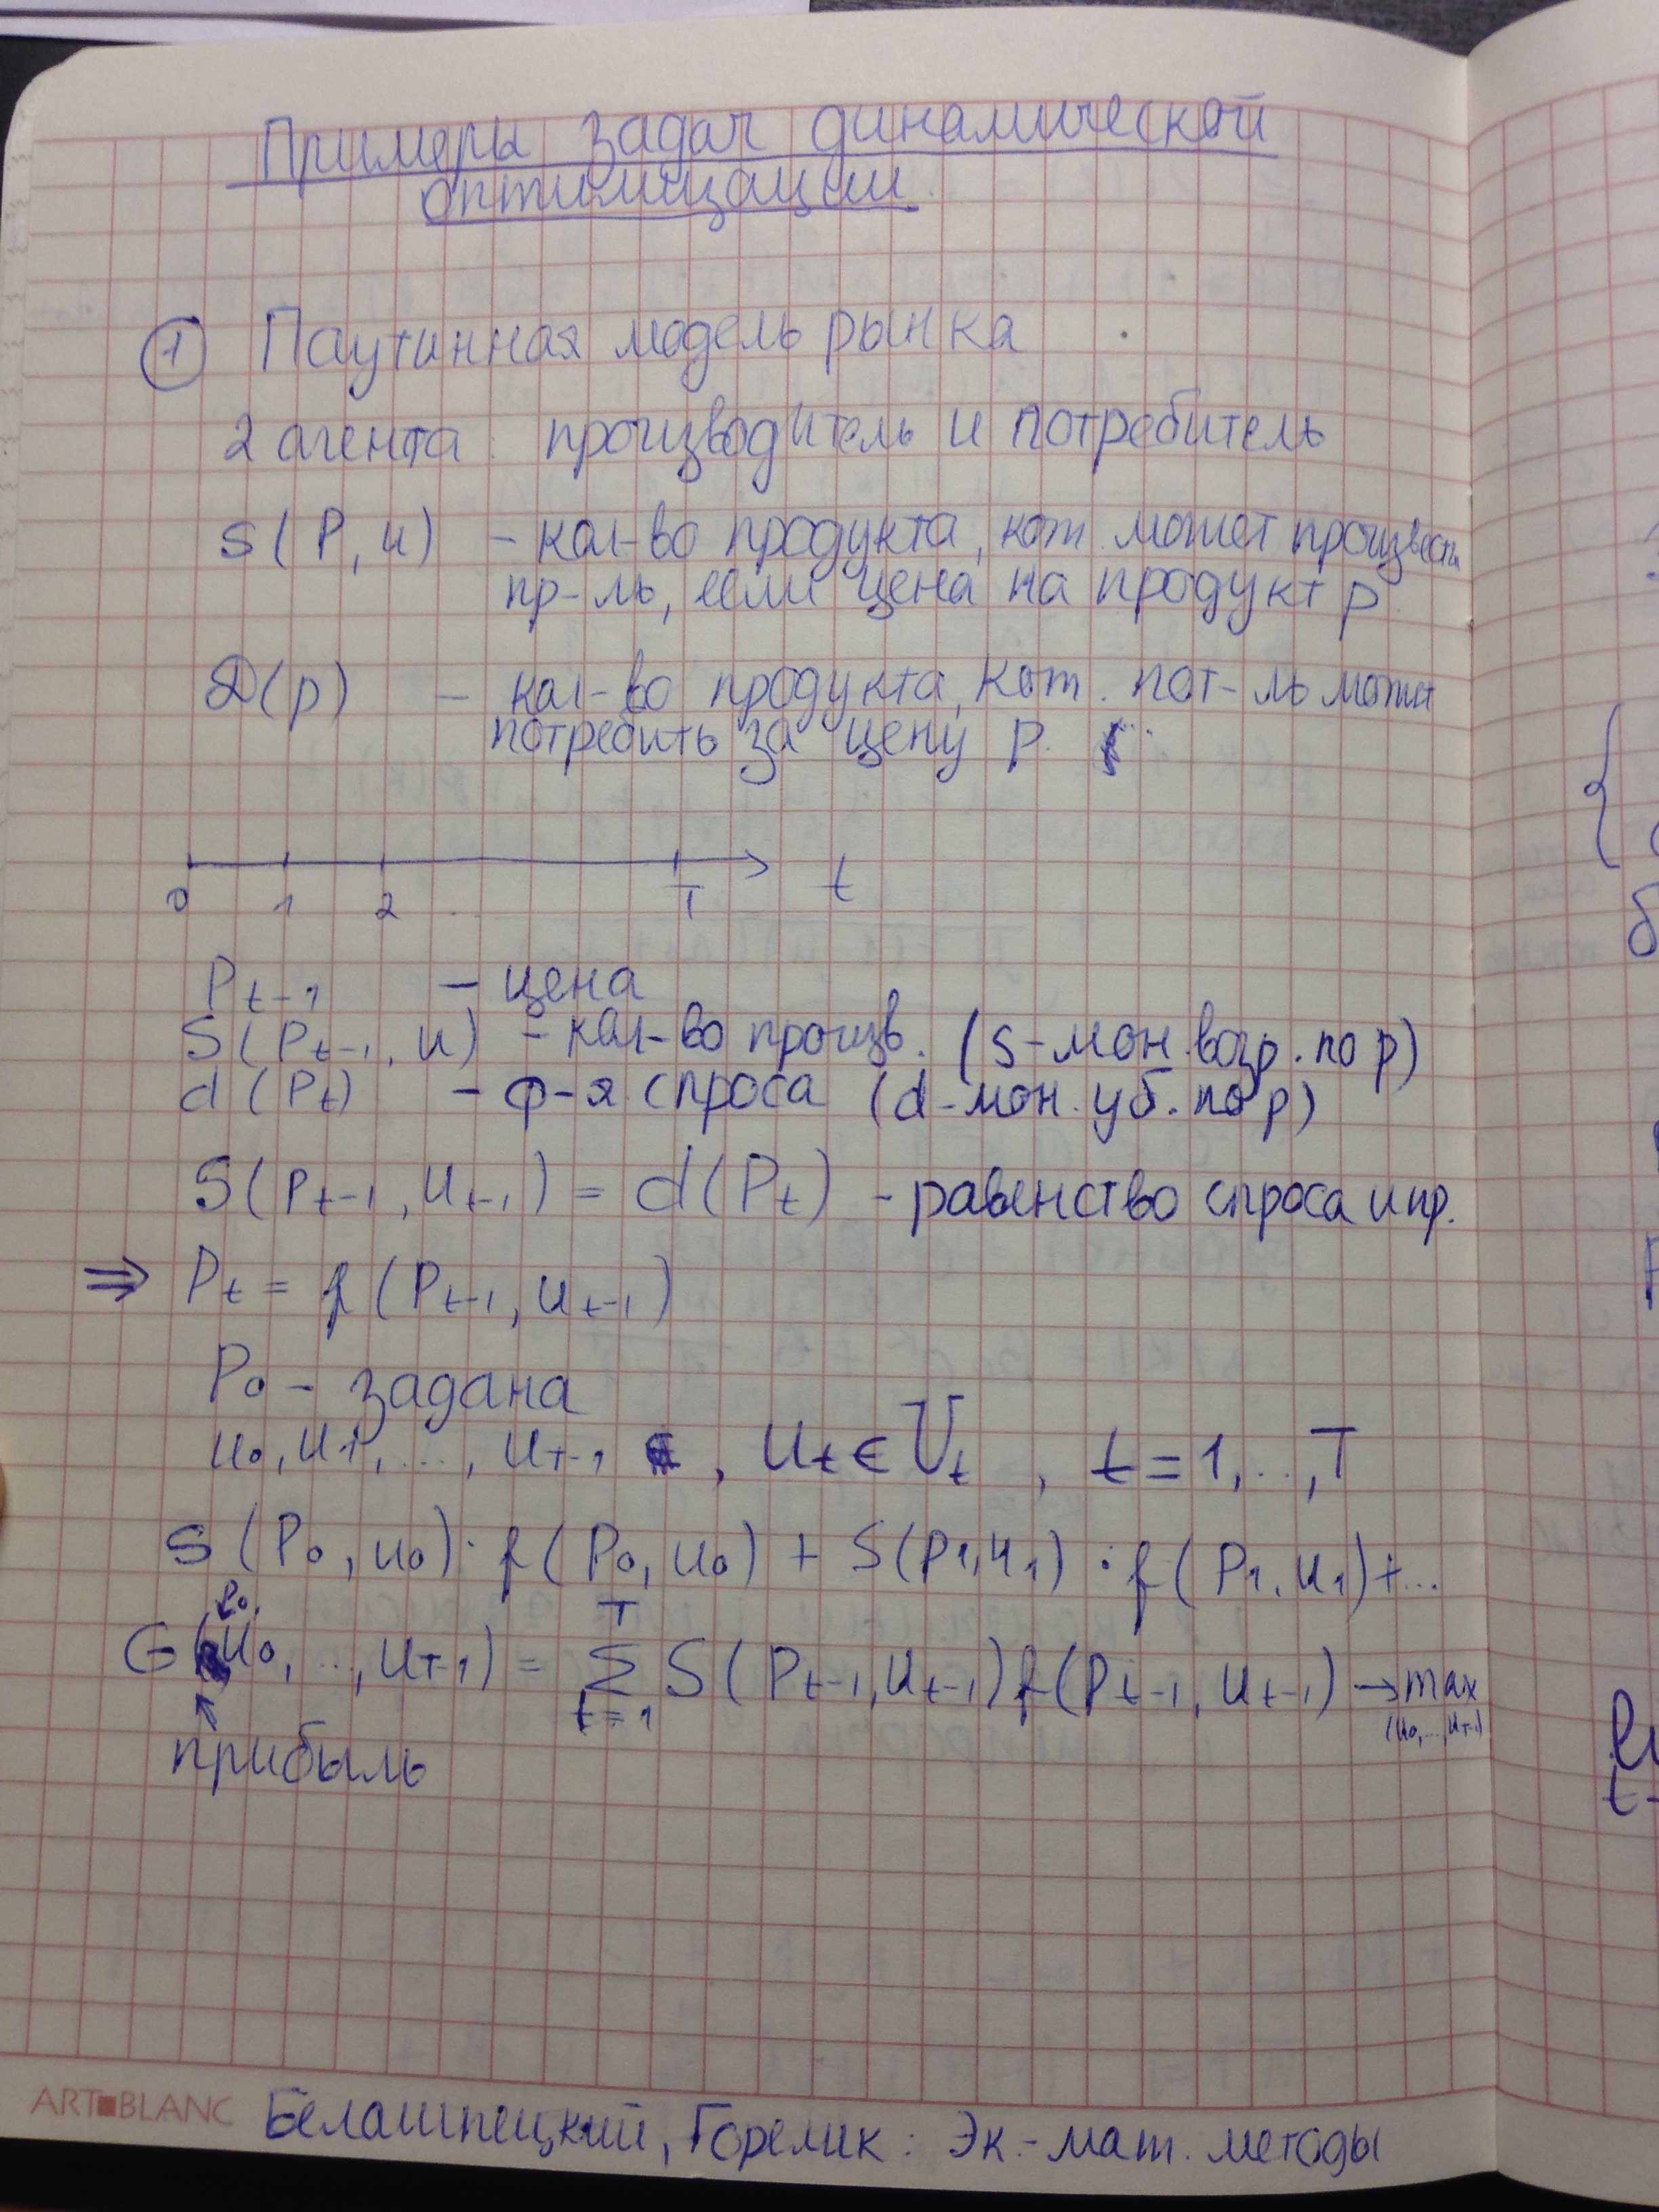 Примеры задач динамической
оптимизации.
① Паутинная модель рынка
2 агента: производитель и потребитель
S(P, u) - кол-во продукта, кот. может произвести
пр-ль, если цена на продукт p.
D(p) - кол-во продукта, кот. пот-ль может
потребить за цену p.
0 1 2 ... T t
P_{t-1} - цена
S(P_{t-1}, u) - кол-во произв. (s-мон.возр.по p)
d(P_t) - ф-я спроса (d-мон.уб.по p)
S(P_{t-1}, u_{t-1}) = d(P_t) - равенство спроса и пр.
⇒ P_t = f(P_{t-1}, u_{t-1})
P_0 - задана
u_0, u_1, ..., u_{T-1}, u_t ∈ U_t, t=1,...,T
S(P_0, u_0)·f(P_0, u_0) + S(P_1, u_1)·f(P_1, u_1)+...
G(P_0, u_0, ..., u_{T-1}) = ∑_{t=1}^{T} S(P_{t-1}, u_{t-1}) f(P_{t-1}, u_{t-1}) → max_{(u_0,...,u_{T-1})}
↑
прибыль
ART■BLANC Белашпецкий, Горелик: Эк.-мат. методы